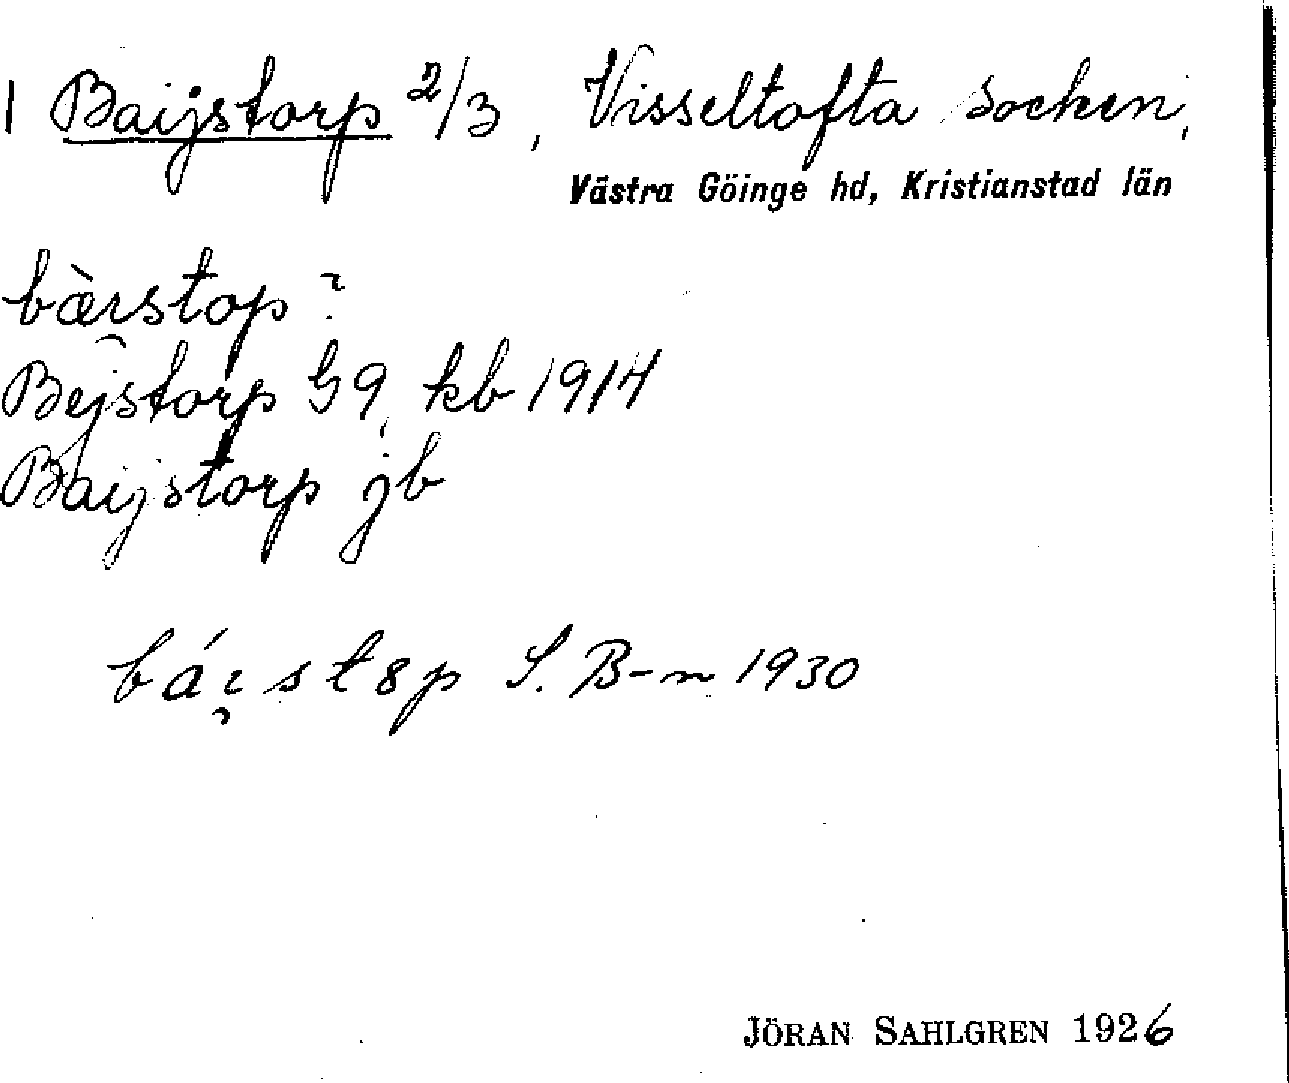 1 Baijstorp 2/3, Visseltofta socken,
Västra Göinge hd, Kristianstad län
bæ̀ı̯stop?
Bejstorp G9, kb 1914
Baijstorp jb
báı̯st8p S. B-n 1930
JÖRAN SAHLGREN 1926